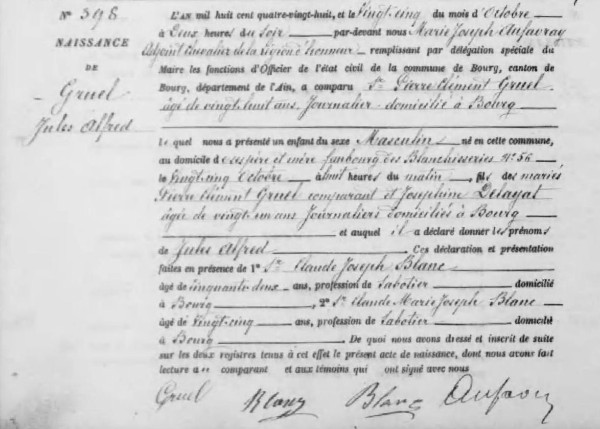 N° 398
NAISSANCE
DE
Gruel
Jules Alfred
L'AN mil huit cent quatre-vingt-huit, et le Vingt-cinq du mois d'Octobre
à Deux heures du soir par-devant nous Marie Joseph
Adjoint Chevalier de la Légion d'honneur remplissant par délégation spéciale du
Maire les fonctions d'Officier de l'état civil de la commune de Bourg, canton de
Bourg, département de l'Ain, a comparu Sr. Pierre Clément Gruel
âgé de vingt huit ans, Journalier domicilié à Bourg
Le quel nous a présenté un enfant du sexe Masculin né en cette commune,
au domicile de ses père et mère faubourg des Blanchisseries N° 56
le Vingt cinq Octobre à huit heures du matin, fils des mariés
Pierre Clément Gruel comparant et Joséphine Delayat
âgée de vingt un ans Journaliers domiciliés à Bourg
et auquel il a déclaré donner les prénoms
de Jules Alfred Ces déclaration et présentation
faites en présence de 1° Sr. Claude Joseph Blanc
âgé de cinquante deux ans, profession de Sabotier domicilié
à Bourg, 2° Sr. Claude Marie Joseph Blanc
âgé de Vingt cinq ans, profession de Sabotier domicilié
à Bourg De quoi nous avons dressé et inscrit de suite
sur les deux registres tenus à cet effet le présent acte de naissance, dont nous avons fait
lecture au comparant et aux témoins qui ont signé avec nous
Gruel Blanc Blanc